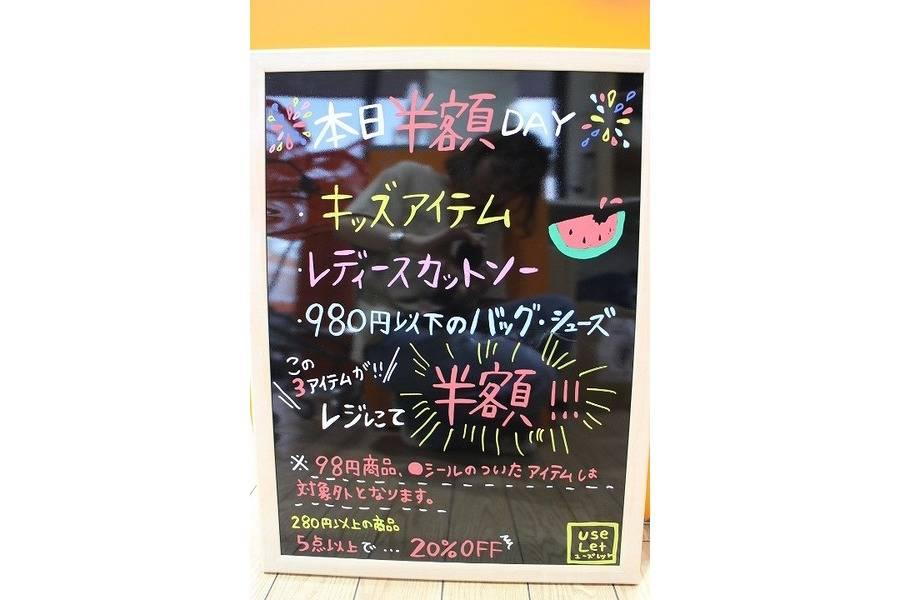 本日半額DAY
・キッズアイテム
・レディースカットソー
・980円以下のバッグ・シューズ
この
3アイテムが!!
レジにて
半額!!!
※98円商品、●シールのついたアイテムは
対象外となります。
280円以上の商品
5点以上で…20%OFF
use
Let
ユーズレット